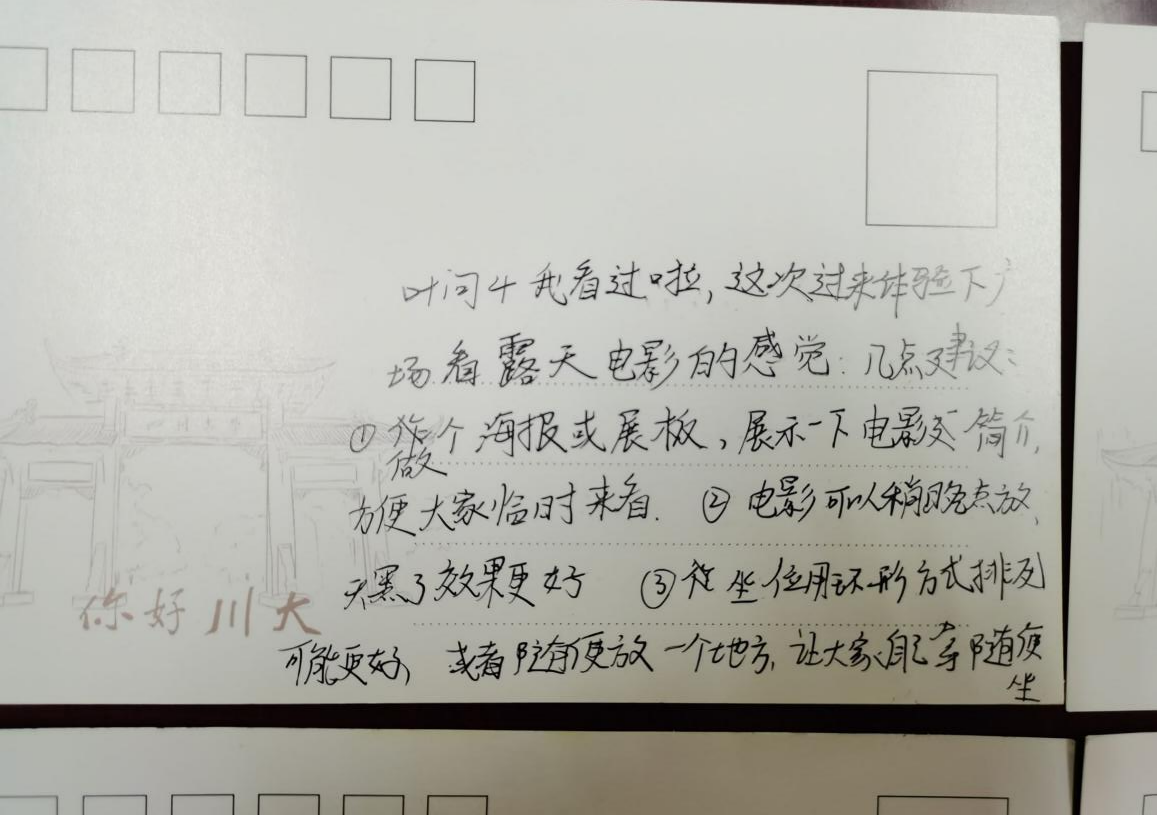 叶问4 我看过啦，这次过来体验下广
场看露天电影的感觉. 几点建议:
① 做个海报或展板，展示一下电影 简介，
方便大家临时来看. ② 电影可以稍晚点放，
天黑了效果更好 ③ 坐位用环形方式排列
可能更好， 或者随便放一个地方，让大家自己 随便
坐
你好川大